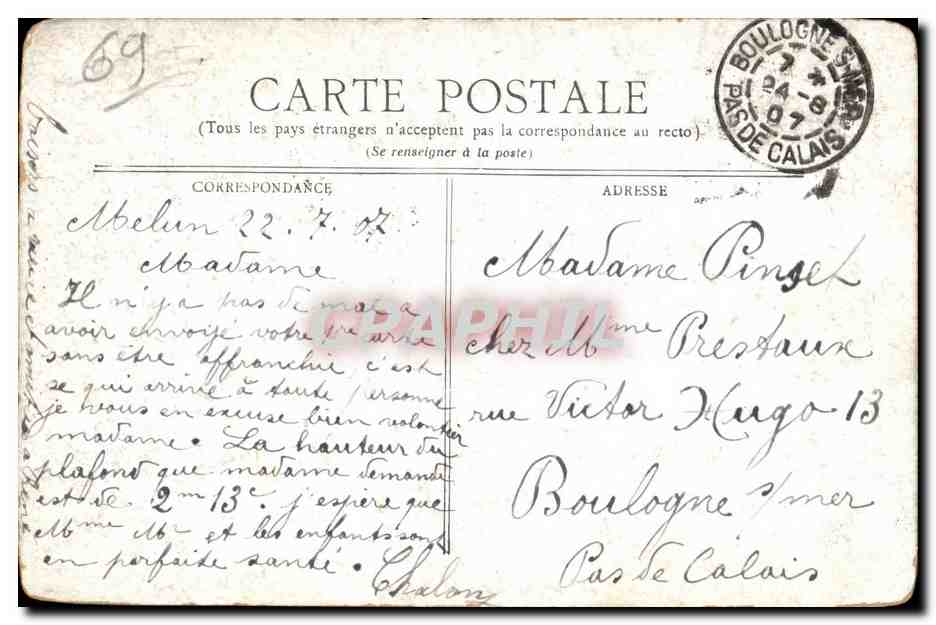 69
BOULOGNE S-MER
7 *
24 - 8
07
PAS DE CALAIS
CARTE POSTALE
(Tous les pays étrangers n'acceptent pas la correspondance au recto)
(Se renseigner à la poste)
CORRESPONDANCE
Melun 22.7.07
Madame
Il n'y a pas de mal a
avoir envoyé votre carte
sans être affranchie, c'est
se qui arrive à toute personne
je vous en excuse bien volontier
madame. La hauteur du
plafond que madame demande
est de 2m 13c. j'espère que
Mme Mr et les enfants sont
en parfaite santé.
Chalon
ADRESSE
Madame Pinsel
chez Mme Préstaux
rue Victor Hugo 13
Boulogne s/mer
Pas de Calais
GRAPHIL